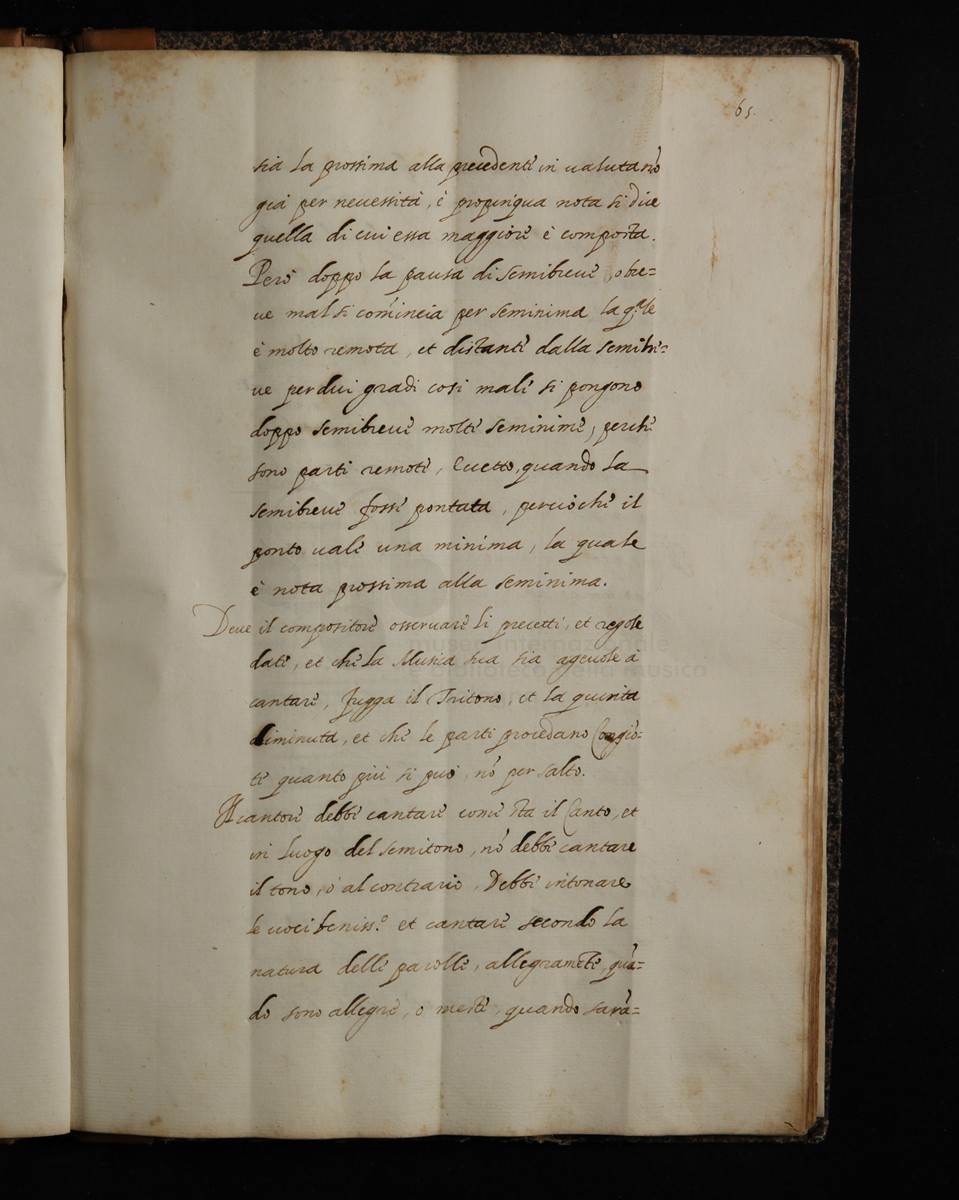 65.
sia la prossima alla precedente in ualuta nõ
già per neuessità, è propinqua nota si dice
quella di cui essa maggiore è composta.
Però doppo la pausa di semibreue, o bre=
ue mal si comincia per seminima la q.le
è molto remota, et distante dalla semibre=
ue per dui gradi cosi male si pongono
doppo semibreue molte seminime, perche
sono parti remote, Ecetto, quando la
semibreue fosse pontata, percioche il
ponto uale una minima, la quale
è nota prossima alla seminima.
Deue il compositore osseruare li precetti, et regole
date, et che la Musica sua sia ageuole à
cantare, fugga il Tritono, et la quinta
diminuta, et che le parti procedano Congiõ=
te quanto più si può, nõ per salto.
Il cantore debbe cantare come sta il Canto, et
in luogo del semitono, nõ debbe cantare
il tono, ò al contrario, Debbe intonare
le uoci beniss.o et cantare secondo la
natura delle parolle, allegramẽte, quã=
do sono allegre, o meste, quando sarã=
biblioteca della musica